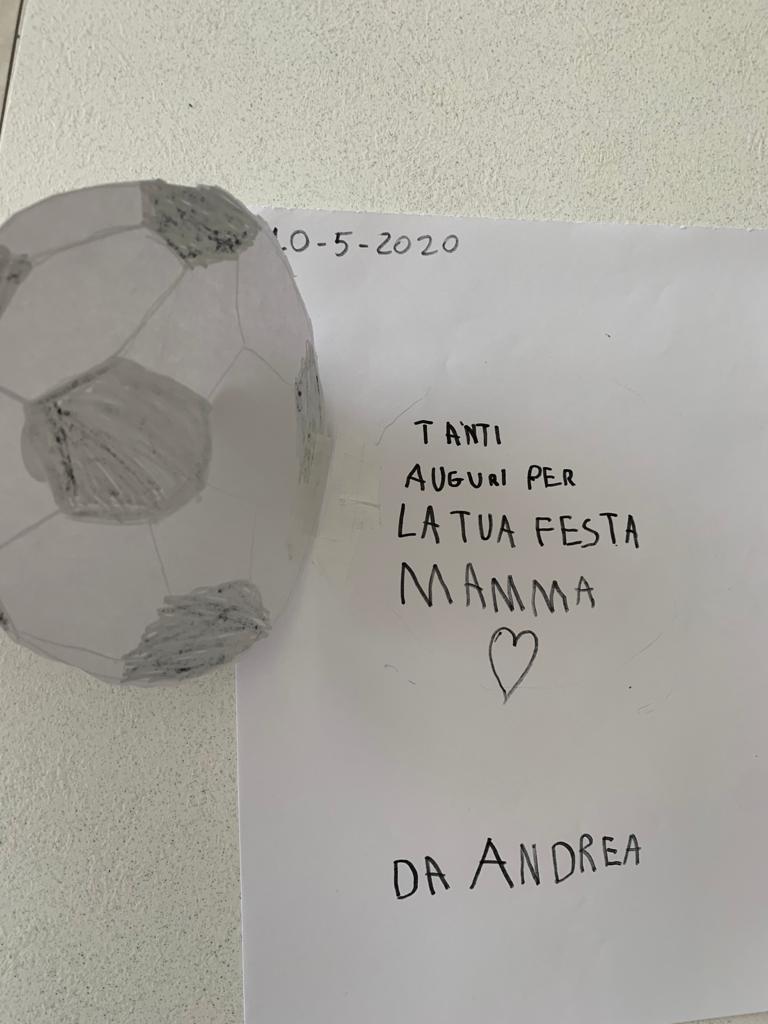 10-5-2020
TANTI
AUGURI PER
LA TUA FESTA
MAMMA
DA ANDREA